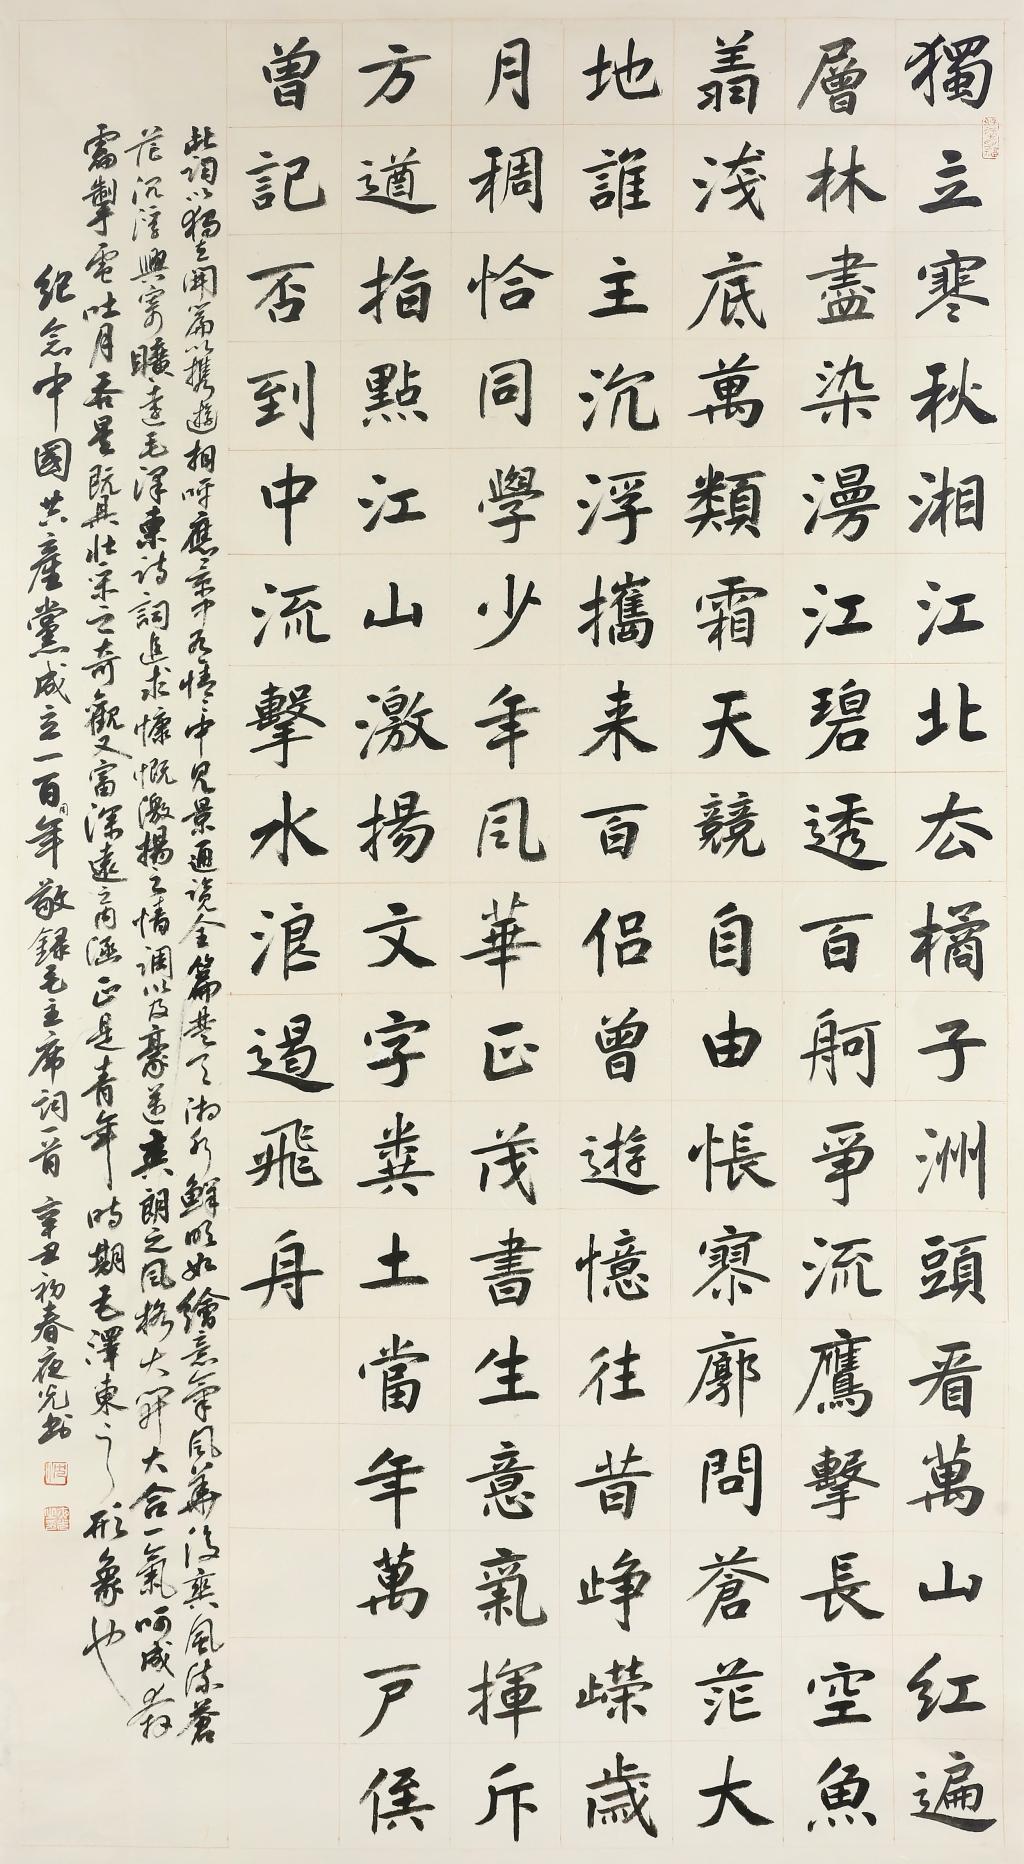 獨立寒秋湘江北去橘子洲頭看萬山紅遍
層林盡染漫江碧透百舸爭流鷹擊長空魚
翥淺底萬類霜天競自由悵寥廓問蒼茫大
地誰主沉浮攜来百侣曾遊憶往昔崢嶸歲
月稠恰同學少年風華正茂書生意氣揮斥
方遒指點江山激揚文字糞土當年萬户侯
曾記否到中流擊水浪遏飛舟
此詞以獨立開篇以攜遊相呼應景中有情情中見景通覽全篇楚天湘水鮮明如繪意氣風華後爽風流蒼
茫沉浮興寄曠達毛澤東詩詞追求慷慨激揚之情調以及豪邁爽朗之風格大開大合一氣呵成
掣電吐月吞星既具壯采之奇觀又富深遠之内涵正是青年時期毛澤東之形象也
紀念中國共產黨成立一百周年敬錄毛主席詞一首辛丑初春夜光書